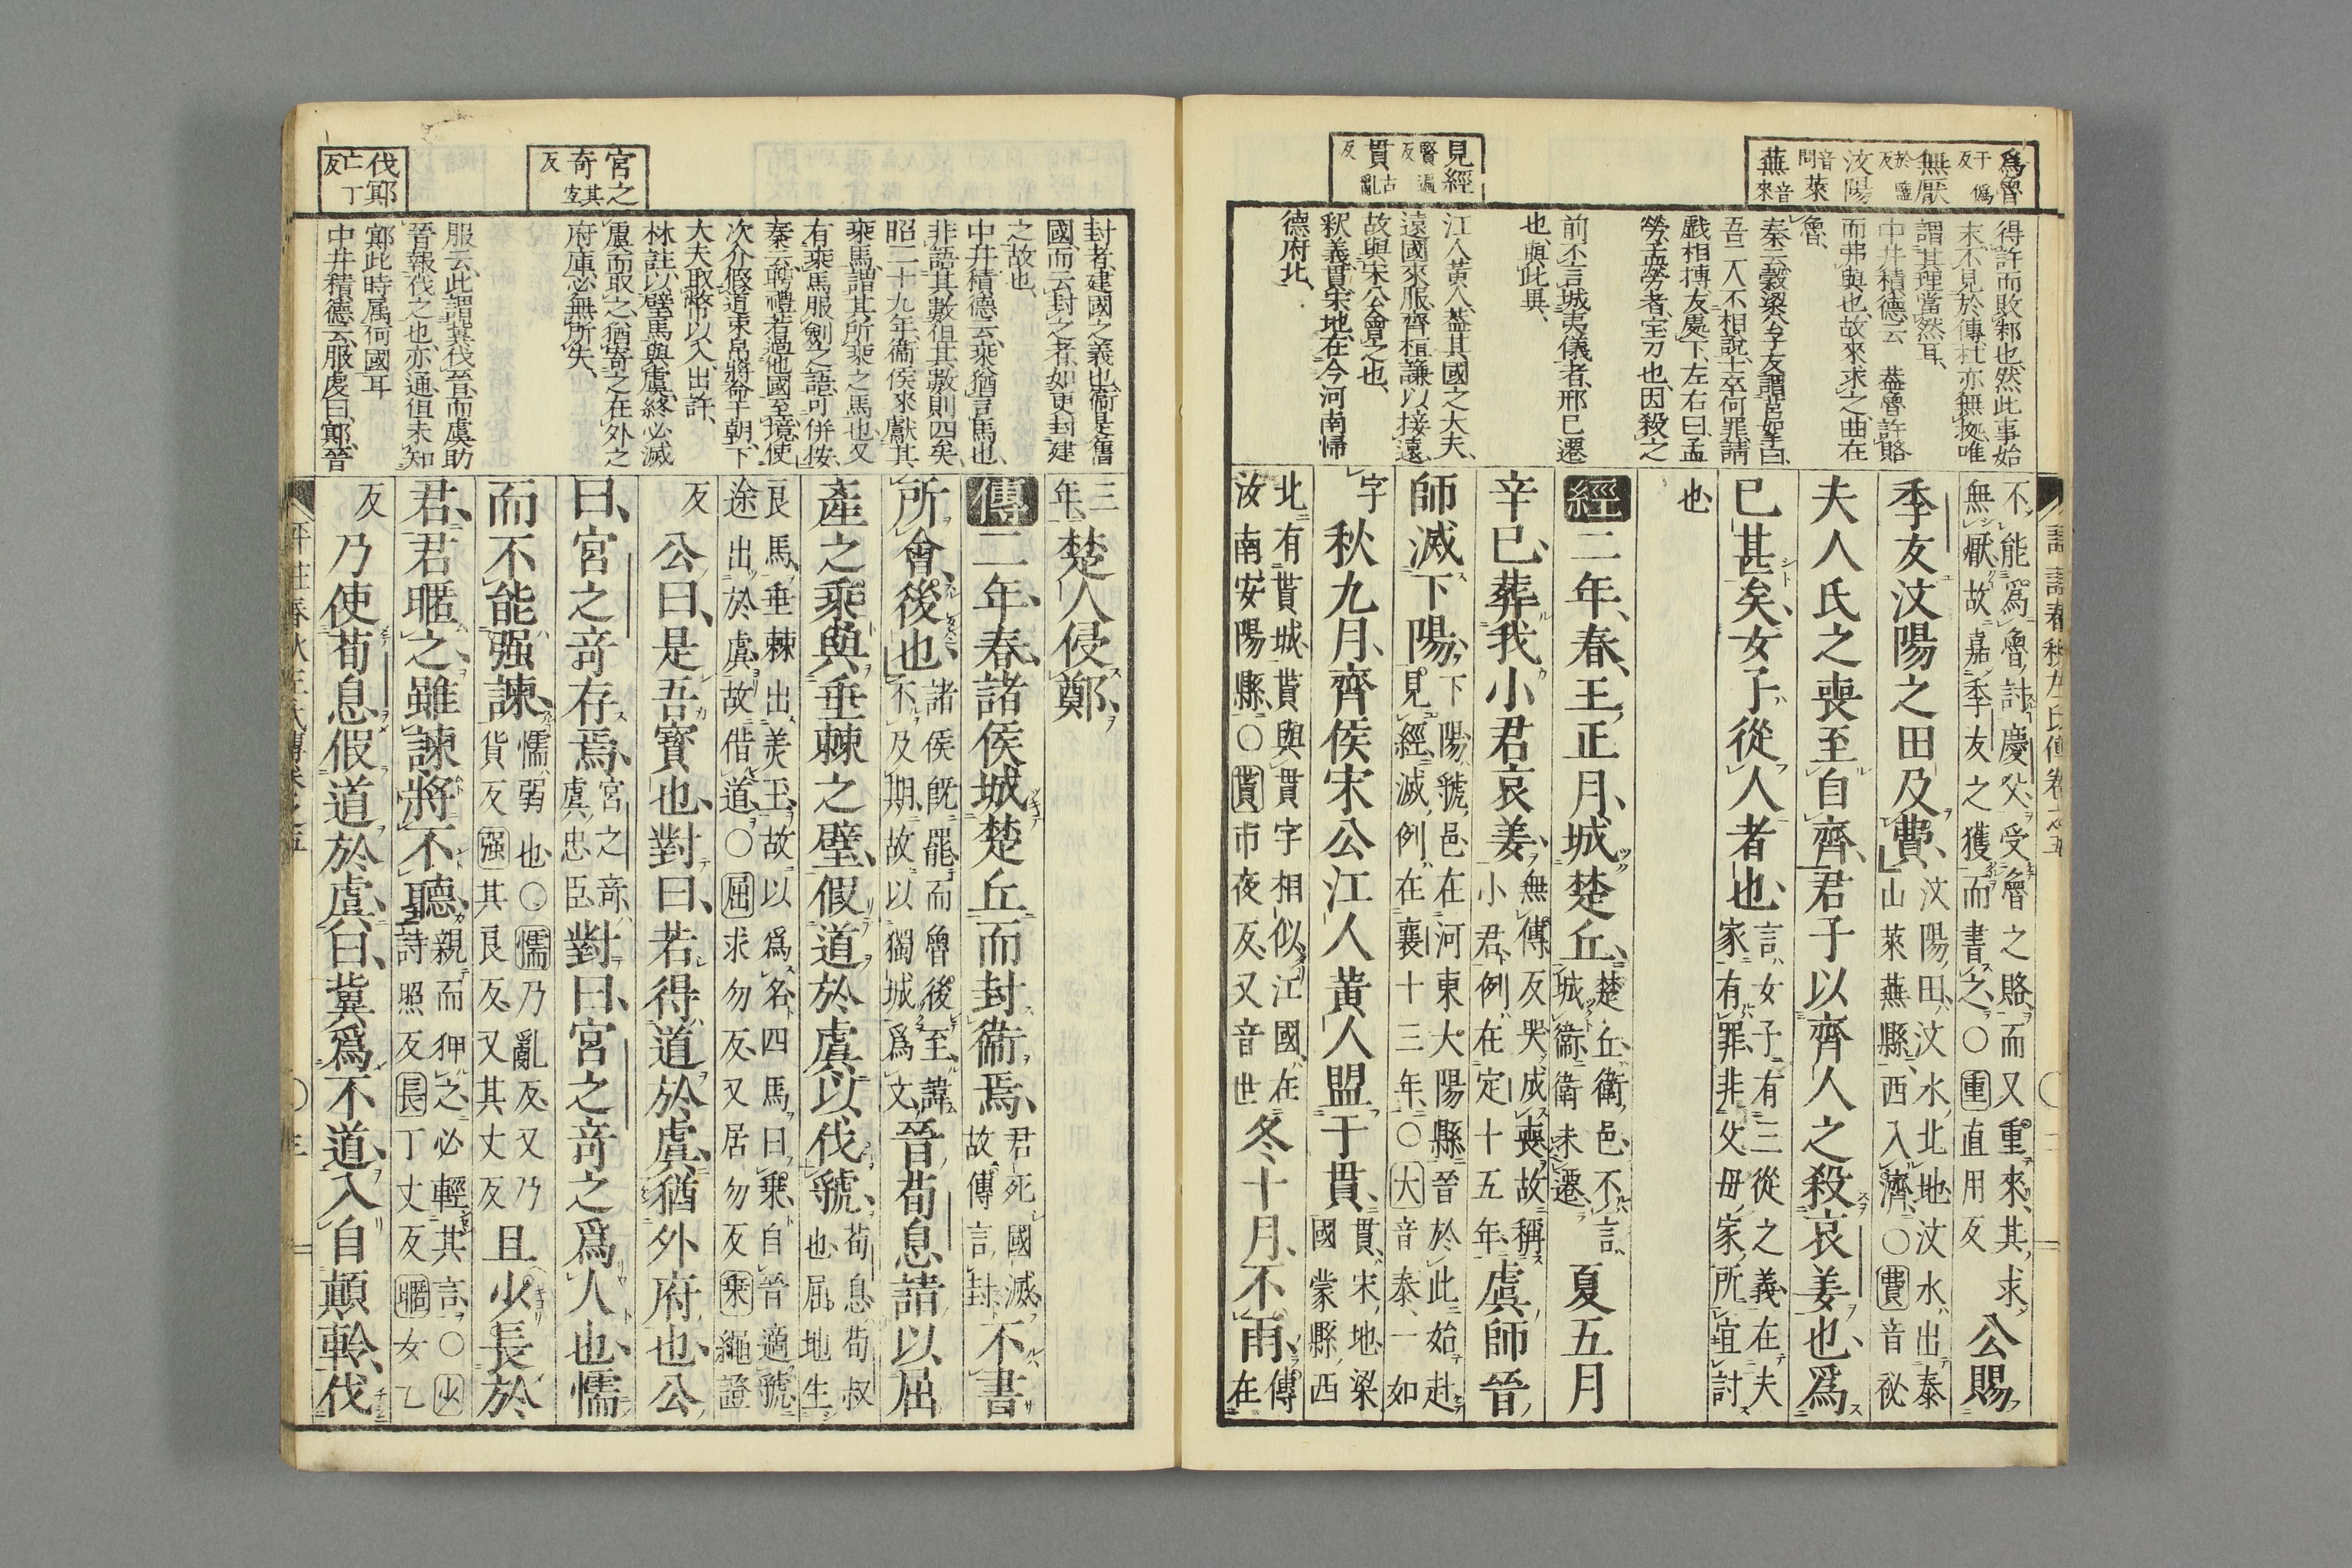 爲魯
于僞反
無厭
於鹽反
汶陽
音問
萊
蕪
音來
見經
賢遍反
貫
古亂反
得許而敗邾也然此事始
末不見於傳杜亦無據唯
謂其理當然耳
中井積德云 蓋魯許賂
而弗與也故來求之曲在
魯
秦云穀梁公子友謂莒挐曰
吾二人不相說士卒何罪請
戲相搏友處下左右曰孟
勞孟勞者宝刀也因殺之
前不言城夷儀者邢已遷
也與此異
江人黃人蓋其國之大夫
遠國來服齊桓謙以接遠
故與宋公會之也
釈義貫宋地在今河南帰
德府北
不能爲魯討慶父受魯之賂而又重來其求
無厭故嘉季友之獲而書之〇重直用反
公賜
季友汶陽之田及費
汶陽田汶水北地汶水出泰
山萊蕪縣西入濟〇費音祕
夫人氏之喪至自齊君子以齊人之殺哀姜也爲
已甚矣女子從人者也
言女子有三從之義在夫
家有罪非父母家所宜討
也
經二年春王正月城楚丘
楚丘衛邑不言
城衛衛未遷
夏五月
辛巳葬我小君哀姜
無傳反哭成喪故稱
小君例在定十五年
虞師晉
師滅下陽
下陽虢邑在河東大陽縣晉於此始赴
見經滅例在襄十三年〇大音泰一如
字
秋九月齊侯宋公江人黃人盟于貫
貫宋地梁
國蒙縣西
北有貰城貰與貫字相似江國在
汝南安陽縣〇貰市夜反又音世
冬十月不雨
傳
在
宮之
奇
其宜反
伐鄍
亡丁反
封者建國之義也衞是舊
國而云封之者如更封建
之故也
中井積德云乘猶言馬也
非語其數但其數則四矣
昭二十九年衞侯來獻其
乘馬謂其所乘之馬也又
有乘馬服劍之語可併按
秦云聘禮若過他國至境使
次介假道束帛將命于朝下
大夫取幣以入出許
林註以璧馬與虞終必滅
虞而取之猶寄之在外之
府庫必無所失
服云此謂冀伐晉而虞助
晉報伐之也亦通但未知
鄍此時属何國耳
中井積德云服虔曰鄍晉
三
年
楚人侵鄭
傳二年春諸侯城楚丘而封衞焉
君死國滅
故傳言封
不書
所會後也
諸侯既罷而魯後至諱
不及期故以獨城爲文
晉荀息請以屈
產之乘與垂棘之璧假道於虞以伐虢
荀息荀叔
也屈地生
良馬垂棘出美玉故以爲名四馬曰乘自晉適虢
途出於虞故借道〇屈求勿反又居勿反乘繩證
反
公曰是吾寶也對曰若得道於虞猶外府也公
曰宮之奇存焉
宮之奇
虞忠臣
對曰宮之奇之爲人也懦
而不能强諫
懦弱也〇懦乃亂反又乃
貨反强其良反又其丈反
且少長於
君君暱之雖諫將不聽
親而狎之必輕其言〇少
詩照反長丁丈反暱女乙
反
乃使荀息假道於虞曰冀爲不道入自顛軨伐